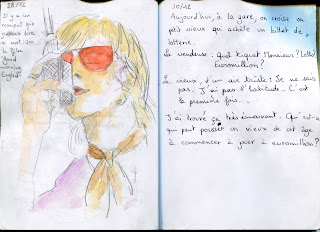 28/12
Il y a un
moment que
je voulais
un mot sur
le film
"good
morning
England"
30/12
Aujourd'hui, à la gare, on croise un
petit vieux qui achète un billet de
loterie.
La vendeuse : Quel ticket Monsieur ? Loto ?
Euromillion ?
Le vieux, d'un air triste : Je ne sais
pas. J'ai pas l'habitude. C'est
la première fois...
J'ai trouvé ça très émouvant. Qu'est-ce
qui peut pousser un vieux de cet âge
à commencer à jouer à euromillion ?